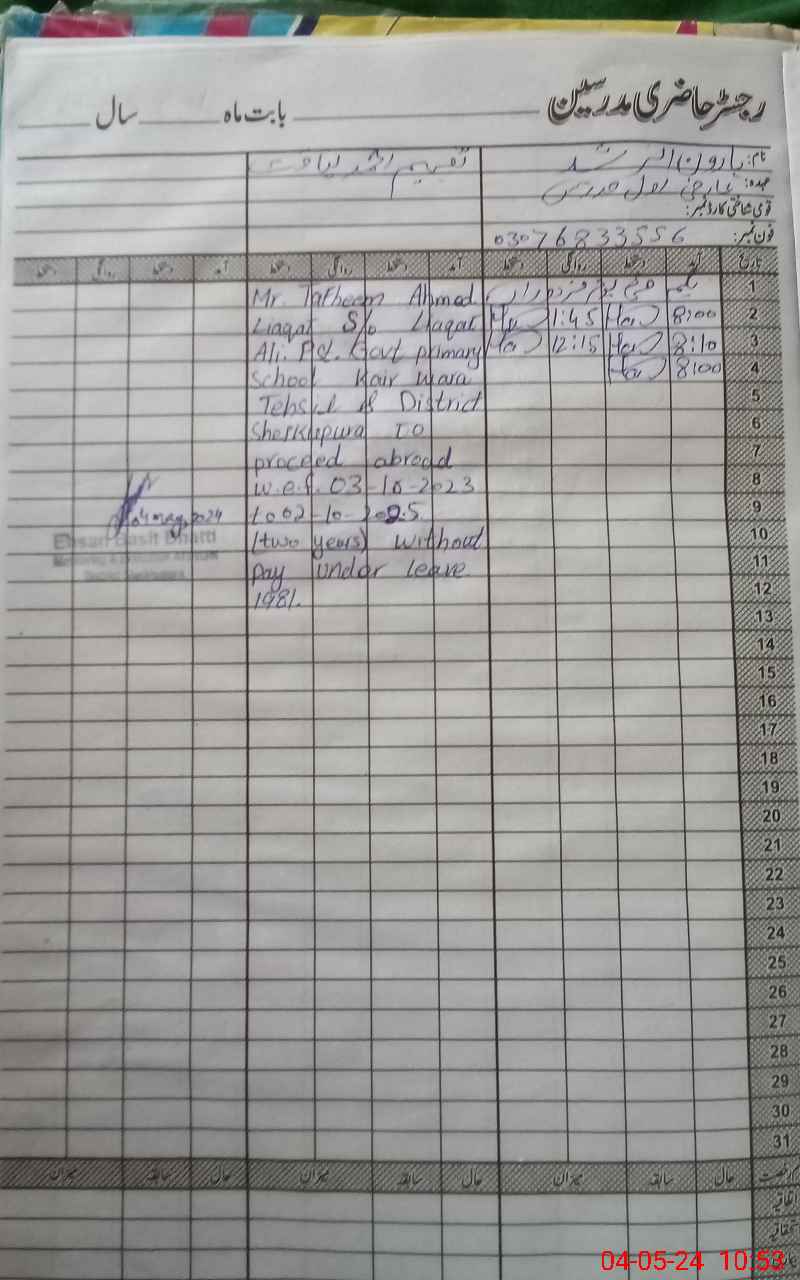 رجسٹر حاضری مدرسین
بابت ماہ
سال
نام: ہارون الرشید
تفہیم احمد لیاقت
عہدہ:
قومی شناختی کارڈ نمبر:
فون نمبر: 03076833556
تاریخ آمد دستخط روانگی دستخط آمد دستخط روانگی دستخط آمد دستخط روانگی دستخط
1
2 8:00 Ha 1:45 Ha
3 8:10 Ha 12:15 Ha
4 8:00 Ha
5
6
7
8
9
10
11
12
13
14
15
16
17
18
19
20
21
22
23
24
25
26
27
28
29
30
31
Mr. Tafheem Ahmed
Liaqat S/o Liaqat
Ali. Pst. Govt primary
School Kair wara
Tehsil & District
Sheikhpura TO
proceed abroad
w.e.f. 03-10-2023
to 02-10-2025.
(two years) without
pay under leave
1981.
04 may, 2024
Ehsan Basit Bhatti
Monitoring & Evaluation Assistant
حال سابقہ میزان حال سابقہ میزان حال سابقہ میزان
اتفاقیہ
04-05-24 10:53